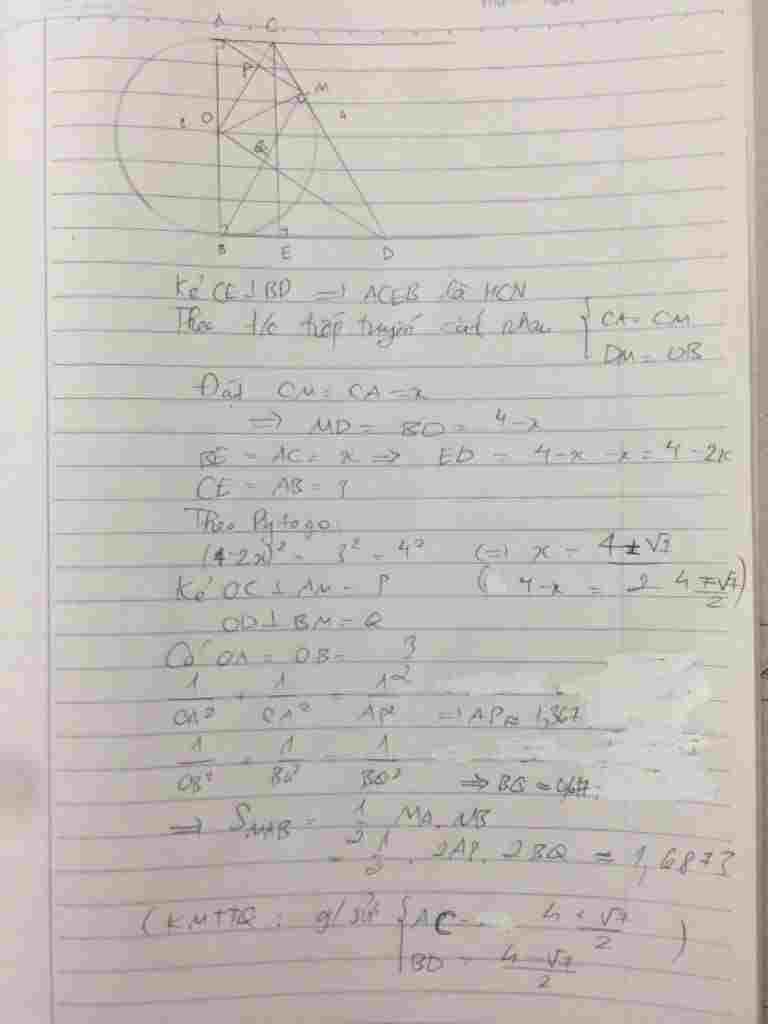 A C
P
M
O
4
Q
B E D
Kẻ CE ⊥ BD => ACEB là HCN
Theo t/c tiếp tuyến cắt nhau { CA = CM
DM = DB
Đặt CM = CA = x
=> MD = BD = 4-x
BE = AC = x => ED = 4-x-x = 4-2x
CE = AB = 3
Theo Pytago
(4-2x)² 3² = 4² (=) x = 4±√7
( 4-x = 2 4∓√7/2 )
Kẻ OC ⊥ AM = P
OD ⊥ BM = Q
Có OA = OB = 3
2
1/OA² + 1/CA² = 1/AP² => AP ≈ 1,367
1/OB² 1/BD² = 1/BQ² => BQ ≈
=> S MAB = 1/2 MA. MB
= 1/2 . 2AP. 2BQ ≈ 1,6873
(KMTTQ : g/sử { AC = 4+√7/2 )
BD = 4-√7/2